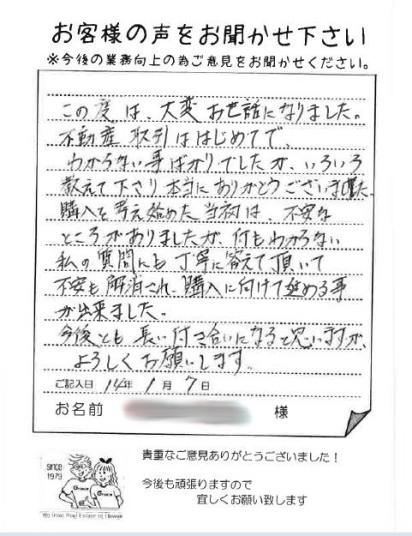 お客様の声をお聞かせ下さい
※今後の業務向上の為ご意見をお聞かせください。
この度は、大変お世話になりました。
不動産取引ははじめてで、
わからない事ばかりでしたが、いろいろ
教えて下さり本当にありがとうございました。
購入を考え始めた当初は、不安な
ところがありましたが、何もわからない
私の質問にも丁寧に答えて頂いて
不安も解消され、購入に向けて進める事
が出来ました。
今後とも長い付き合いになると思いますが、
よろしくお願いします。
ご記入日 14年 1月 7日
お名前 様
SINCE
1979
貴重なご意見ありがとうございました！
今後も頑張りますので
宜しくお願い致します